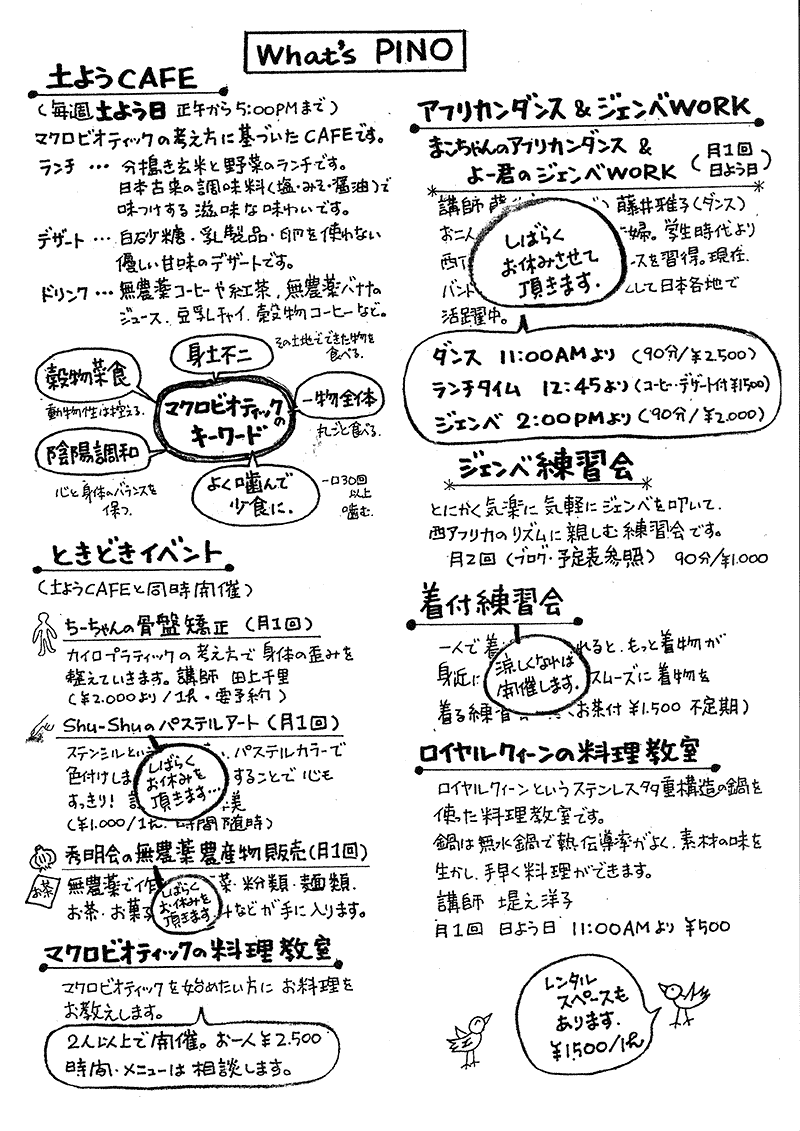 What's PINO
土ようCAFE
(毎週土よう日 正午から5:00PMまで)
マクロビオティックの考え方に基づいたCAFEです。
ランチ … 分搗き玄米と野菜のランチです。
日本古来の調味料(塩・みそ・醤油)で
味つけする滋味な味わいです。
デザート … 白砂糖・乳製品・卵を使わない
優しい甘味のデザートです。
ドリンク … 無農薬コーヒーや紅茶、無農薬バナナの
ジュース、豆乳チャイ、穀物コーヒーなど。
マクロビオティックの
キーワード
身土不二
その土地でできた物を
食べる。
穀物菜食
動物性は控える。
一物全体
丸ごと食べる。
陰陽調和
心と身体のバランスを
保つ。
よく噛んで
少食に。
一口30回
以上
噛む。
ときどきイベント
(土ようCAFEと同時開催)
ちーちゃんの骨盤矯正(月1回)
カイロプラティックの考え方で身体の歪みを
整えていきます。講師 田上千里
(¥2.000より/1h・要予約)
Shu-Shuのパステルアート(月1回)
ステンシルとい パステルカラーで
色付けしま することで心も
すっきり! 美
(¥1.000/1h 時間随時)
しばらく
お休みを
頂きます…
秀明会の無農薬農産物販売(月1回)
お茶
無農薬で作 菜・粉類・麺類、
お茶・お菓 などが手に入ります。
しばらく
お休みを
頂きます
マクロビオティックの料理教室
マクロビオティックを始めたい方にお料理を
お教えします。
2人以上で開催。お一人¥2.500
時間・メニューは相談します。
アフリカンダンス&ジェンベWORK
まこちゃんのアフリカンダンス &
よー君のジェンベWORK
(月1回
日よう日)
講師 藤井雅子(ダンス)
お二人 婦。学生時代より
西 スを習得。現在、
バンド して日本各地で
活躍中。
しばらく
お休みさせて
頂きます.
ダンス 11:00AMより (90分/¥2.500)
ランチタイム 12:45より(コーヒー・デザート付¥1500)
ジェンベ 2:00PMより(90分/¥2.000)
ジェンベ練習会
とにかく気楽に気軽にジェンベを叩いて、
西アフリカのリズムに親しむ練習会です。
月2回(ブログ・予定表参照) 90分/¥1.000
着付練習会
一人で着 れると、もっと着物が
身近に スムーズに着物を
着る練習会 (お茶付 ¥1.500 不定期)
涼しくなれば
開催します.
ロイヤルクィーンの料理教室
ロイヤルクィーンというステンレス多重構造の鍋を
使った料理教室です。
鍋は無水鍋で熱伝導率がよく、素材の味を
生かし、手早く料理ができます。
講師 堤え洋子
月1回 日よう日 11:00AMより ¥500
レンタル
スペースも
あります.
¥1500/1h